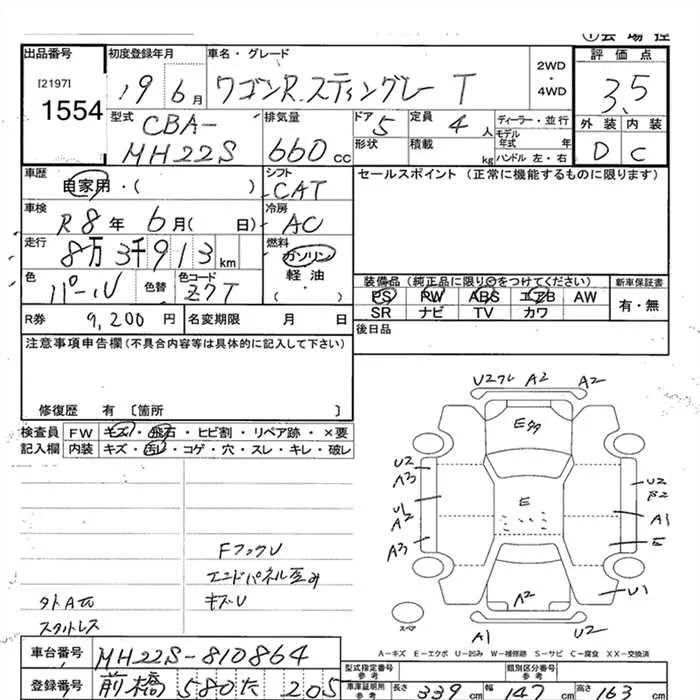 ①会場控
出品番号 初度登録年月 車名・グレード 評価点
[2197]
1554
19 6月 ワゴンR スティングレー T 2WD・4WD 3.5
型式 排気量 ドア 定員 ディーラー・並行 外装 内装
CBA-
MH22S 660cc 5 4人 モデル年式 年 D C
形状 積載 kg ハンドル 左・右
車歴 シフト セールスポイント(正常に機能するものに限ります)
自家用・( ) CAT
車検 冷房
R8年 6月( 日) AC
走行 燃料
8万3千913km ガソリン
色 色替 色コード 軽油
パール Z7T ( ・ )
装備品(純正品に限り○をつけてください) 新車保証書
PS PW ABS エアB AW 有・無
SR ナビ TV カワ
R券 9,200円 名変期限 月 日 後日品
注意事項申告欄(不具合内容等は具体的に記入して下さい)
修復歴 有〔箇所 〕
検査員 FW キズ・飛石・ヒビ割・リペア跡・×要
記入欄 内装 キズ・汚レ・コゲ・穴・スレ・キレ・破レ
U2 A2 A2
E
U2
A3
E
U2
U1
A2
A1
A3
E
U1
A2
A1
U2
スペア
FフックU
エンドパネル歪み
キズU
スタットレス
A-キズ E-エクボ U-凹み W-補修跡 S-サビ C-腐食 XX-交換済
車台番号 MH22S-810864
登録番号 前橋 580 た 205
型式指定番号 参考 類別区分番号 参考
車庫証明用 参考 長さ 339cm 幅 147cm 高さ 163cm